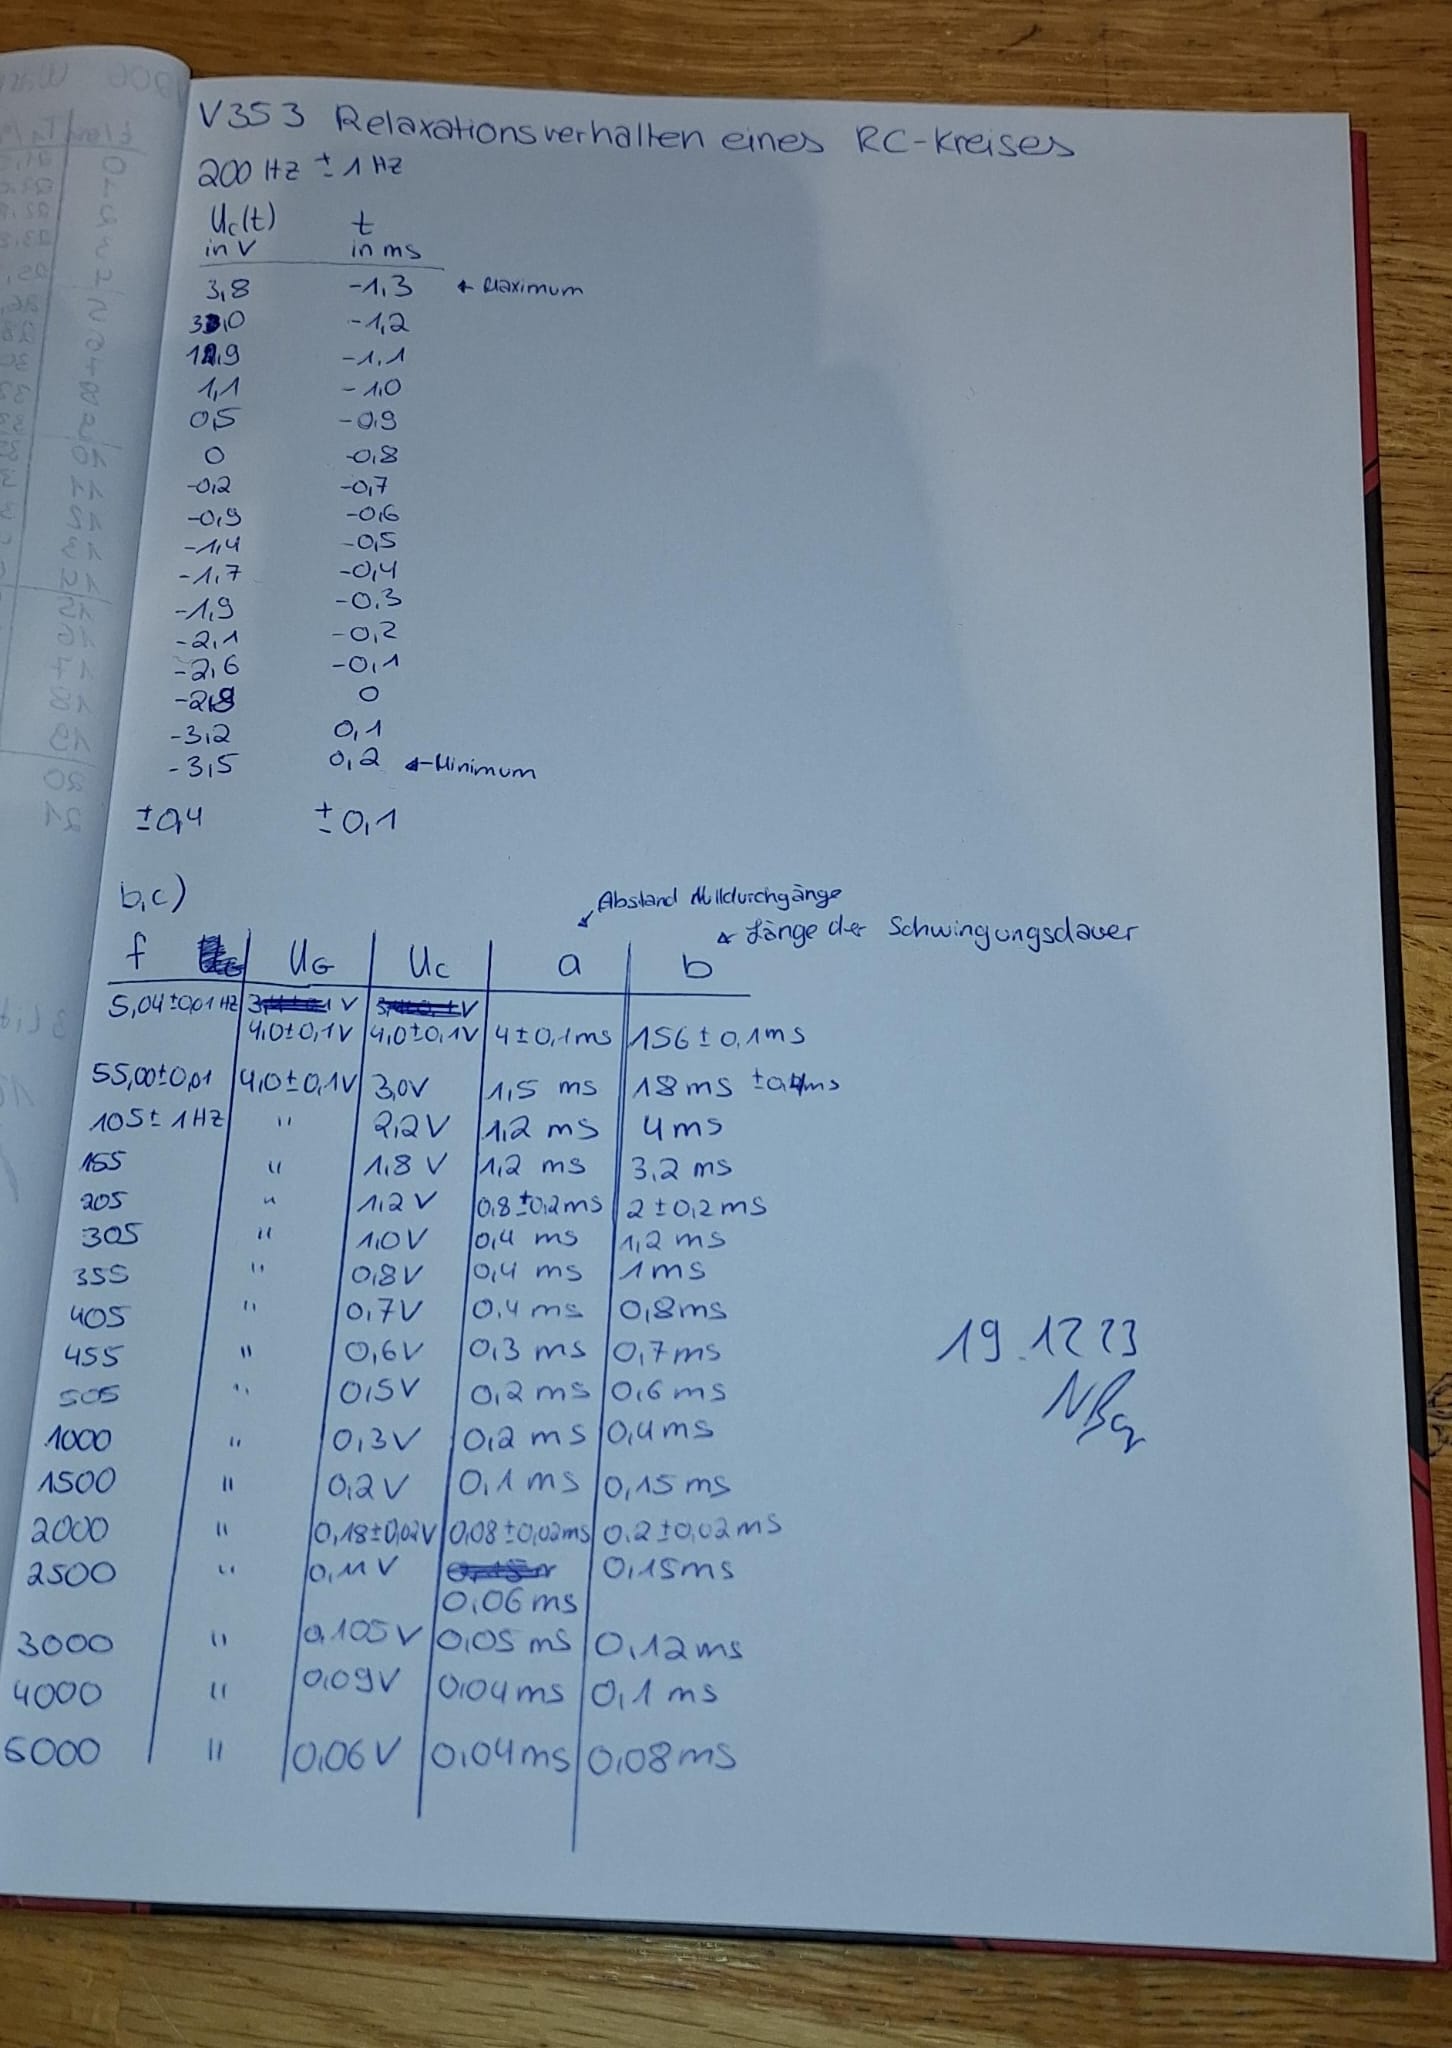 V353 Relaxationsverhalten eines RC-Kreises
200 Hz ± 1 Hz
Uc(t) t
in V in ms
3,8 -1,3 ← Maximum
3,0 -1,2
1,9 -1,1
1,1 -1,0
0,5 -0,9
0 -0,8
-0,2 -0,7
-0,9 -0,6
-1,4 -0,5
-1,7 -0,4
-1,9 -0,3
-2,1 -0,2
-2,6 -0,1
-2,8 0
-3,2 0,1
-3,5 0,2 ← Minimum
±0,4 ±0,1
b,c)
Abstand Nulldurchgänge
Länge der Schwingungsdauer
f UG UC a b
5,04±0,01 Hz
4,0±0,1V 4,0±0,1V 4±0,1ms 156±0,1ms
55,00±0,01 4,0±0,1V 3,0V 1,5 ms 18ms
105± 1Hz " 2,2V 1,2 ms 4ms
155 " 1,8 V 1,2 ms 3,2 ms
205 " 1,2 V 0,8±0,2ms 2±0,2ms
305 " 1,0V 0,4 ms 1,2 ms
355 " 0,8V 0,4 ms 1ms
405 " 0,7V 0,4 ms 0,8ms
455 " 0,6V 0,3 ms 0,7ms
505 " 0,5V 0,2 ms 0,6ms
1000 " 0,3V 0,2 ms 0,4ms
1500 " 0,2V 0,1 ms 0,15ms
2000 " 0,18±0,02V 0,08±0,02ms 0,2±0,02ms
2500 " 0,11V 0,15ms
0,06ms
3000 " 0,105V 0,05ms 0,12ms
4000 " 0,09V 0,04ms 0,1ms
5000 " 0,06V 0,04ms 0,08ms
19.12 23